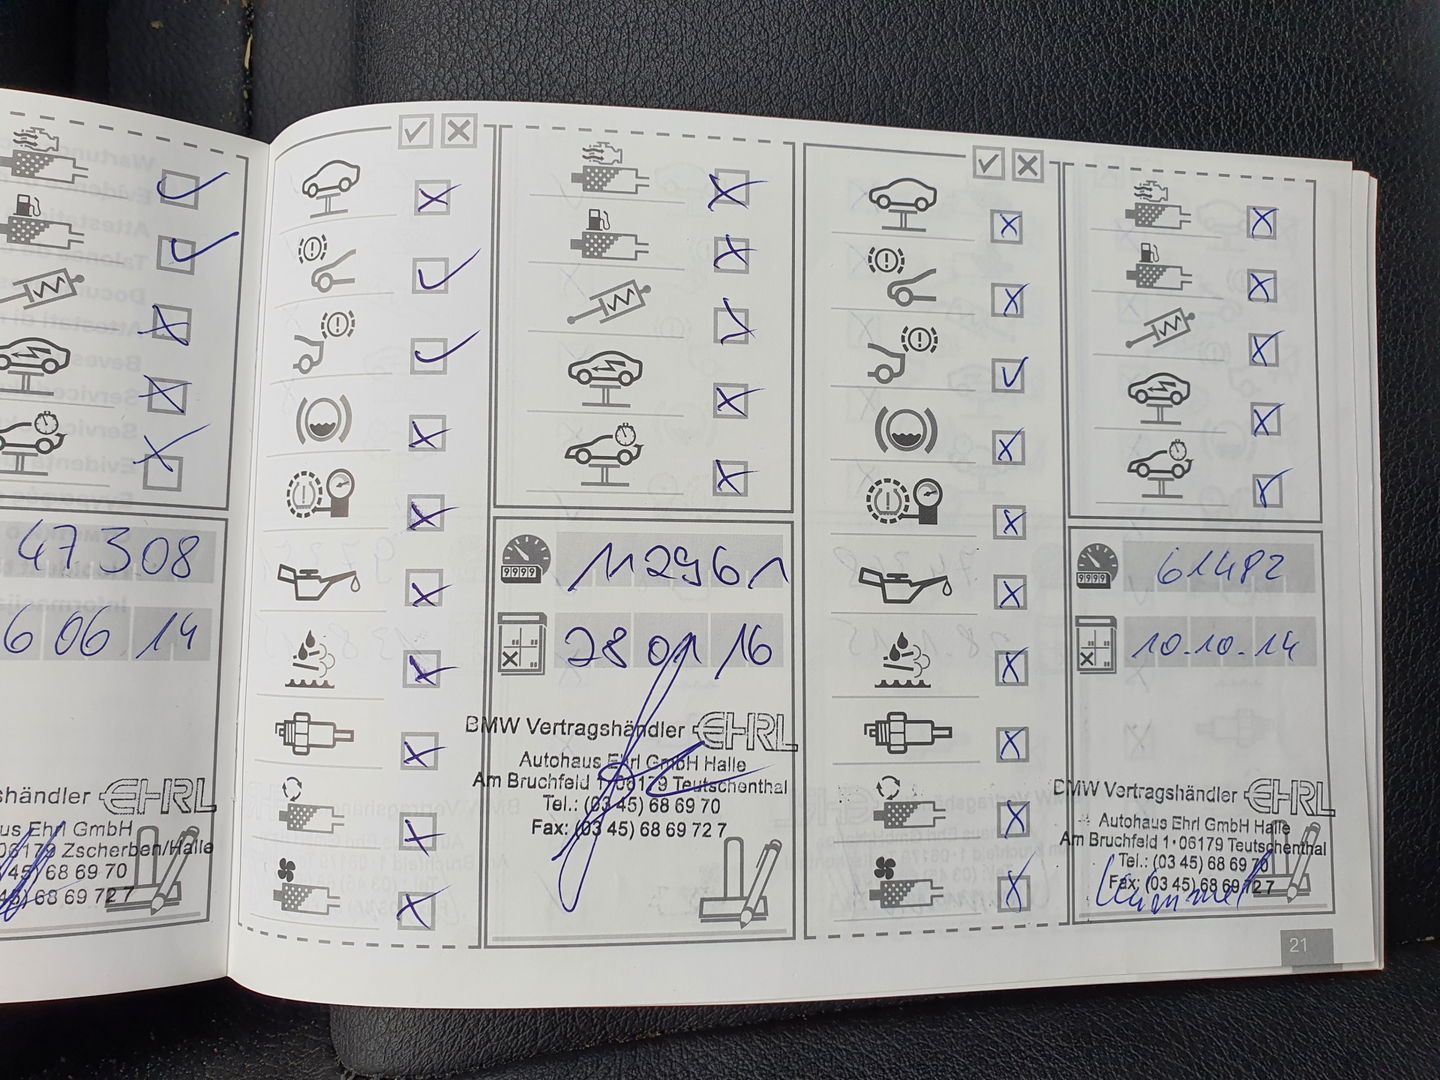 47308
6 06 14
shändler EHRL
aus Ehrl GmbH
06179 Zscherben/Halle
45) 68 69 70
45) 68 69 72 7
9999
112961
28 01 16
BMW Vertragshändler EHRL
Autohaus Ehrl GmbH Halle
Am Bruchfeld 1 · 06179 Teutschenthal
Tel.: (03 45) 68 69 70
Fax: (03 45) 68 69 72 7
9999
61482
10.10.14
BMW Vertragshändler EHRL
Autohaus Ehrl GmbH Halle
Am Bruchfeld 1 · 06179 Teutschenthal
Tel.: (03 45) 68 69 70
Fax: (03 45) 68 69 72 7
21